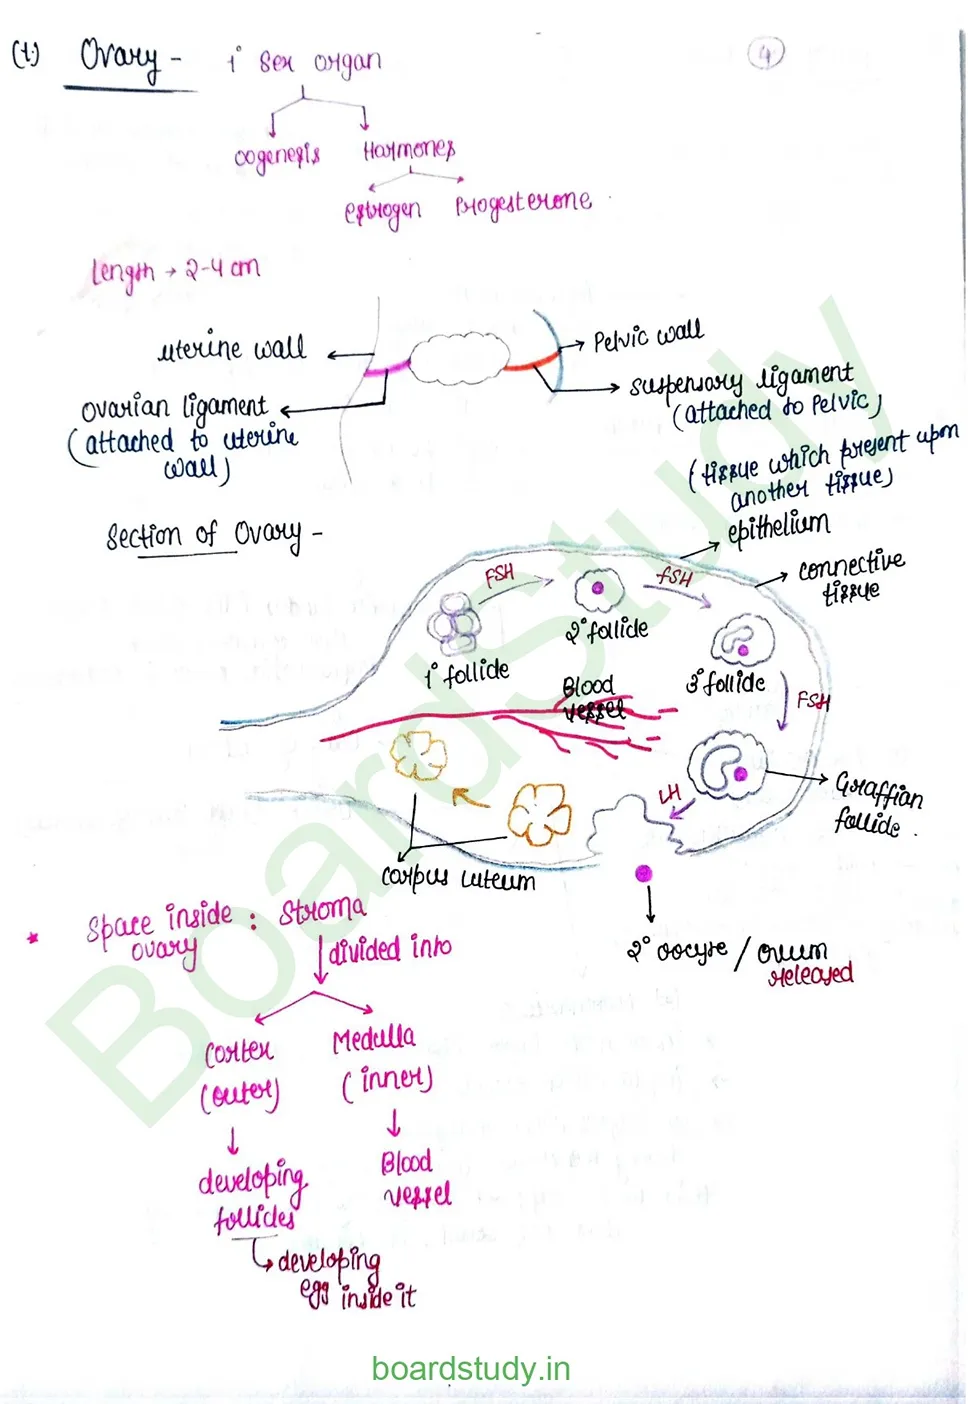 (1.) Ovary - 1° Sex organ
4
oogenesis Hormones
estrogen Progesterone
Length → 2-4 cm
uterine wall
Pelvic wall
ovarian ligament
(attached to uterine
wall)
suspensory ligament
(attached to Pelvic)
(tissue which present upon
another tissue)
epithelium
Section of Ovary -
connective
tissue
FSH
FSH
1° follicle
2° follicle
3° follicle
FSH
Blood
vessel
LH
Graffian
follicle .
corpus luteum
2° oocyte / ovum
released
* Space inside : Stroma
ovary
divided into
Cortex
(outer)
Medulla
(inner)
developing
follicles
Blood
vessel
developing
egg inside it
BoardStudy
boardstudy.in